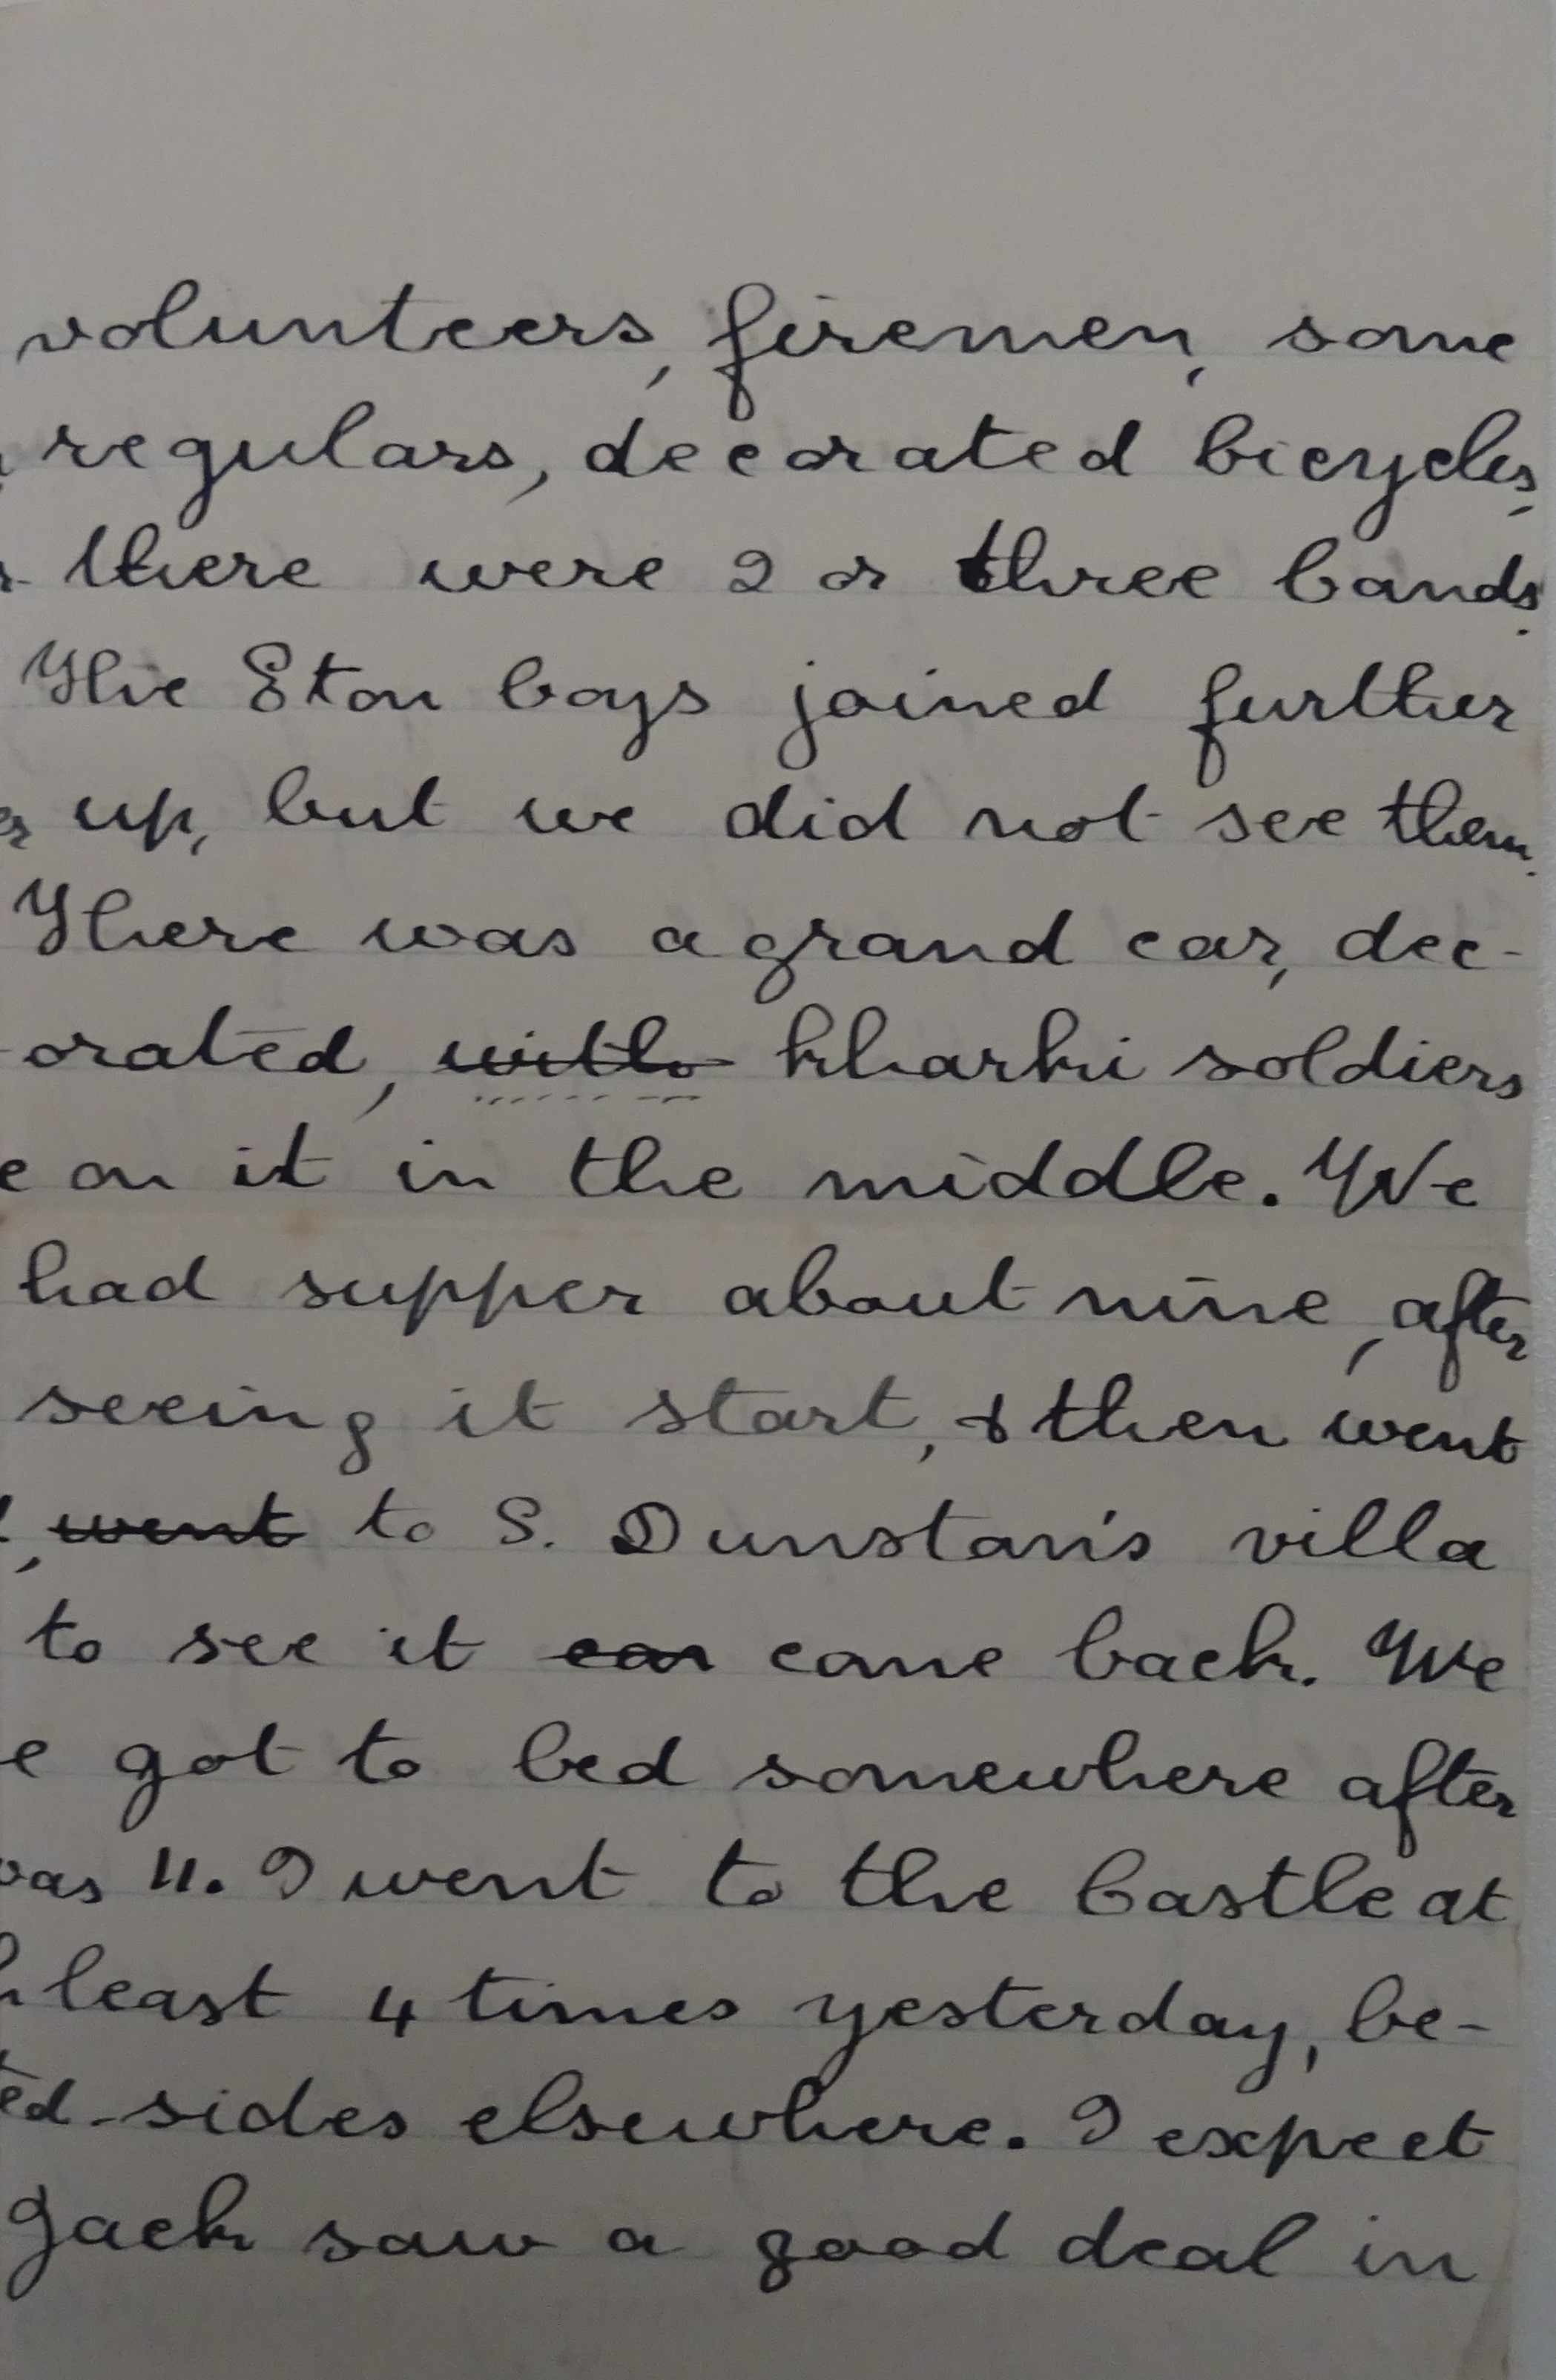 volunteers, firemen, some
regulars, decorated bicycles,
there were 2 or three bands.
The Eton boys joined further
up, but we did not see them.
There was a grand car, dec-
-orated, with kharki soldiers
on it in the middle. We
had supper about nine, after
seeing it start, & then went
, went to S. Dunstan's villa
to see it com come back. We
got to bed somewhere after
11. I went to the Castle at
least 4 times yesterday, be-
-sides elsewhere. I expect
Jack saw a good deal in